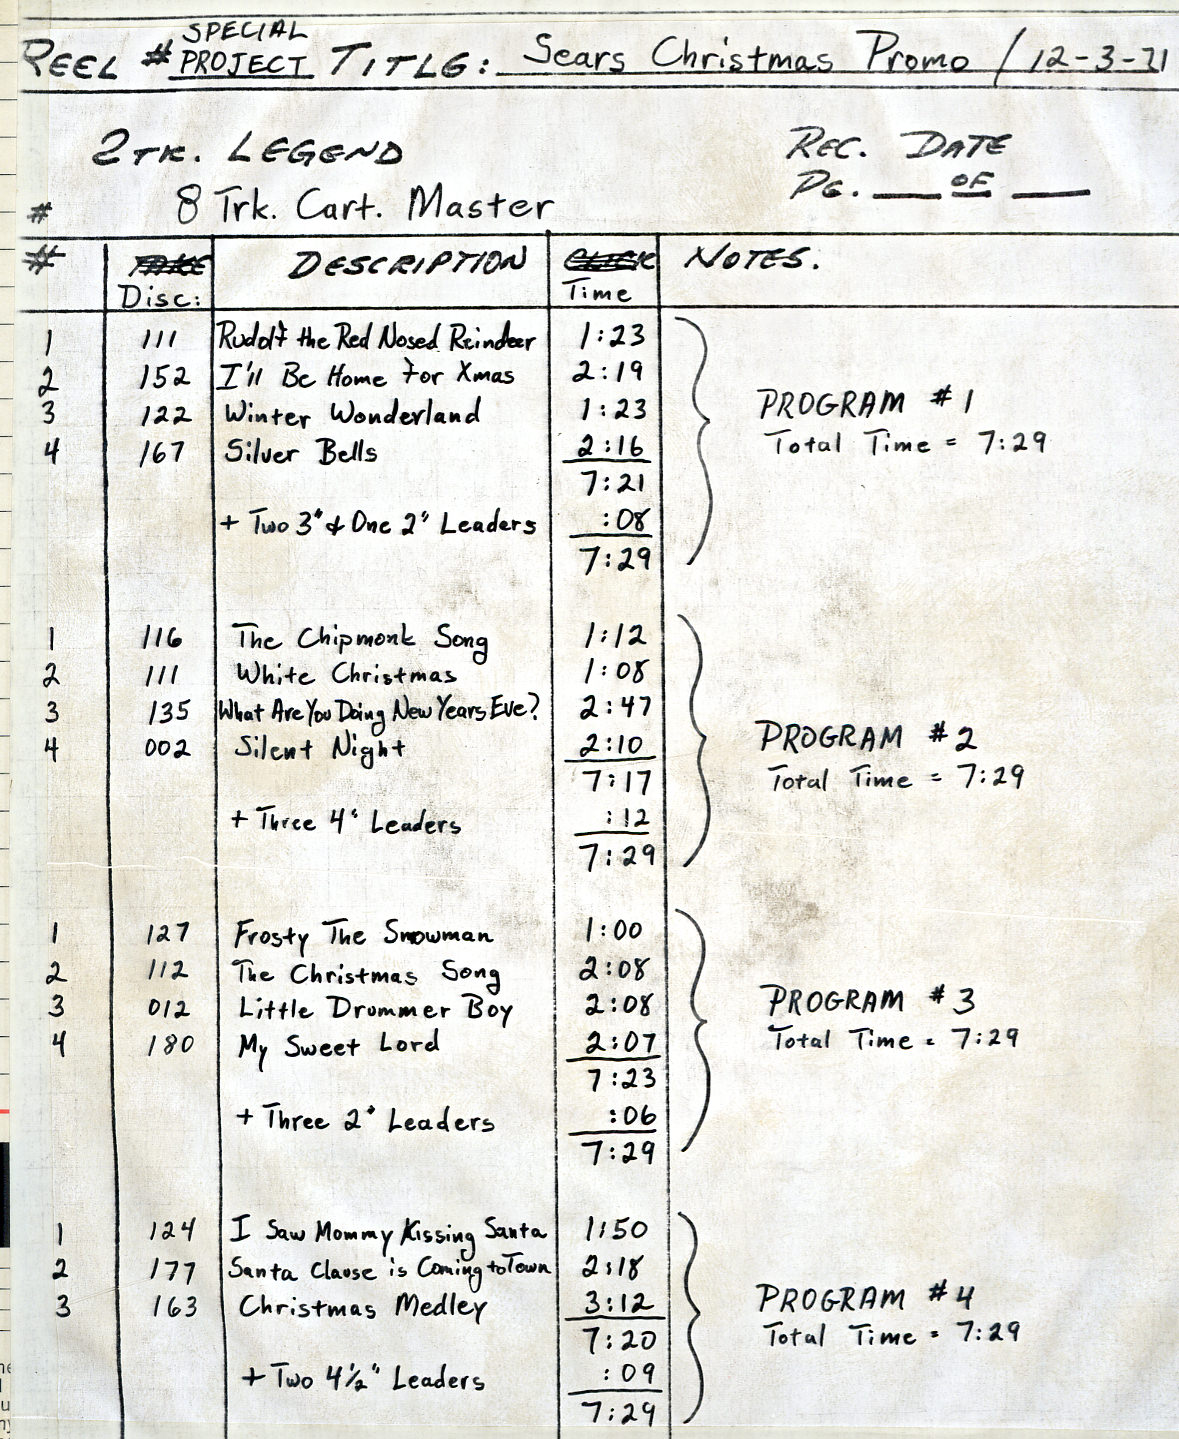 REEL # SPECIAL PROJECT TITLE: Sears Christmas Promo / 12-3-71
2TK. LEGEND
REC. DATE
8 Trk. Cart. Master
PG. ___ OF ___
#
# TAKE DESCRIPTION CLICK NOTES.
Disc: Time
1 111 Rudolf the Red Nosed Reindeer 1:23
2 152 I'll Be Home For Xmas 2:19
3 122 Winter Wonderland 1:23
4 167 Silver Bells 2:16
7:21
+ Two 3" & One 2" Leaders :08
7:29
PROGRAM #1
Total Time = 7:29
1 116 The Chipmonk Song 1:12
2 111 White Christmas 1:08
3 135 What Are You Doing New Years Eve? 2:47
4 002 Silent Night 2:10
7:17
+ Three 4" Leaders :12
7:29
PROGRAM #2
Total Time = 7:29
1 127 Frosty The Snowman 1:00
2 112 The Christmas Song 2:08
3 012 Little Drummer Boy 2:08
4 180 My Sweet Lord 2:07
7:23
+ Three 2" Leaders :06
7:29
PROGRAM #3
Total Time = 7:29
1 124 I Saw Mommy Kissing Santa 1:50
2 177 Santa Clause is Coming to Town 2:18
3 163 Christmas Medley 3:12
7:20
+ Two 4½" Leaders :09
7:29
PROGRAM #4
Total Time = 7:29